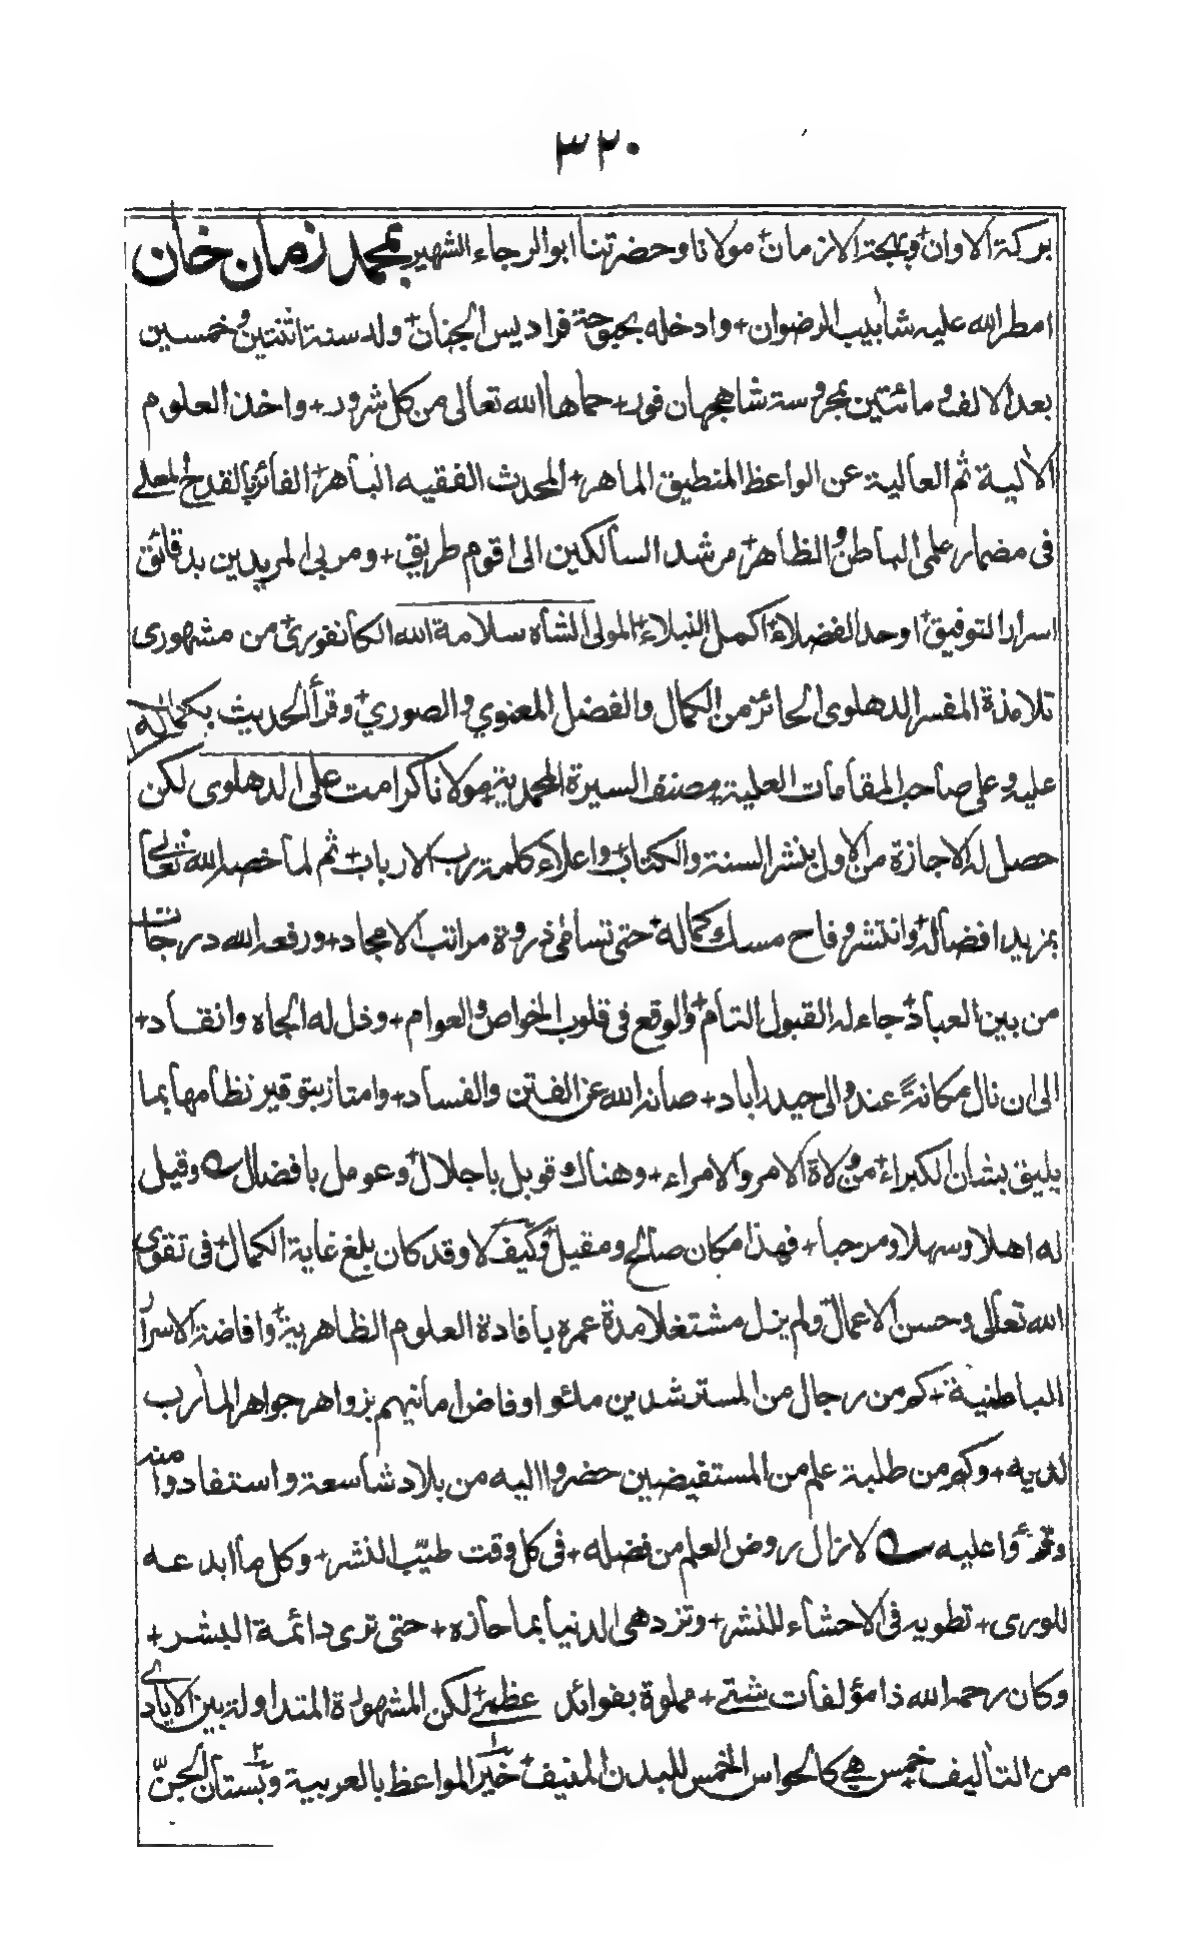 ٣٢٠
بركة الاوان+ وبهجة الازمان+ مولانا وحضرتنا ابو الرجاء الشهير بمحمد زمان خان
امطر الله عليه شآبيب الرضوان+ وادخله بحبوحة فراديس الجنان+ ولد سنة اثنتين وخمسين
بعد الالف ومائتين بمحروسة شاهجهان فور+ حماها الله تعالى من كل شرور+ واخذ العلوم
الآلية ثم العالية عن الواعظ المنطيق الماهر+ المحدث الفقيه الباهر+ الفائز بالقدح المعلى
فى مضمار علمى الباطن والظاهر+ مرشد السالكين الى اقوم طريق+ ومربى المريدين بدقائق
اسرار التوفيق+ اوحد الفضلاء+ اكمل النبلاء+ المولى الشاه سلامة الله الكانفورى+ من مشهورى
تلامذة المفسر الدهلوى الحائز من الكمال والفضل المعنوي والصوري+ وقرأ الحديث بكماله
عليه وعلى صاحب المقامات العلية+ مصنف السيرة المحمدية+ مولانا كرامت على الدهلوى لكن
حصل له الاجازة من الاول بنشر السنة والكتاب+ واعلاء كلمة رب الارباب+ ثم لما خصه الله تعالى
بمزيد افضاله+ وانتشر وفاح مسك كماله+ حتى تسامى ذروة مراتب الامجاد+ ورفعه الله درجات
من بين العباد+ جاء له القبول التام+ والوقع فى قلوب الخواص والعوام+ وذل له الجاه وانقاد+
الى ان نال مكانة عند والى حيدراباد+ صانه الله عن الفتن والفساد+ وامتاز بتوقير نظامها بما
يليق بشان الكبراء+ من ولاة الامر والامراء+ وهناك قوبل باجلال+ وعومل بافضال وقيل
له اهلا وسهلا ومرحبا+ فهذا مكان صالح ومقيل+ وكيف لا وقد كان بلغ غاية الكمال+ فى تقوى
الله تعالى وحسن الاعمال+ ولم يزل مشتغلا مدة عمره بافادة العلوم الظاهرية+ وافاضة الاسرار
الباطنية+ كم من رجال من المسترشدين ملئوا وفاض امانيهم بزواهر جواهر المآرب
لديه+ وكم من طلبة علم من المستفيضين حضروا اليه من بلاد شاسعة واستفادوا منه
وقرؤا عليه لازال روض العلم من فضله+ فى كل وقت طيّب النشر+ وكل ما ابدعه
للورى+ تطويه فى الاحشاء للنشر+ وتزدهى الدنيا بما حازه+ حتى ترى دائمة البشر+
وكان رحمه الله ذا مؤلفات شتى+ مملوة بفوائد عظمى+ لكن المشهورة المتداولة بين الايادى
من التاليف خمس هى كالحواس الخمس للبدن المنيف+ ١ خير المواعظ بالعربية ٢ وبستان الجنّ